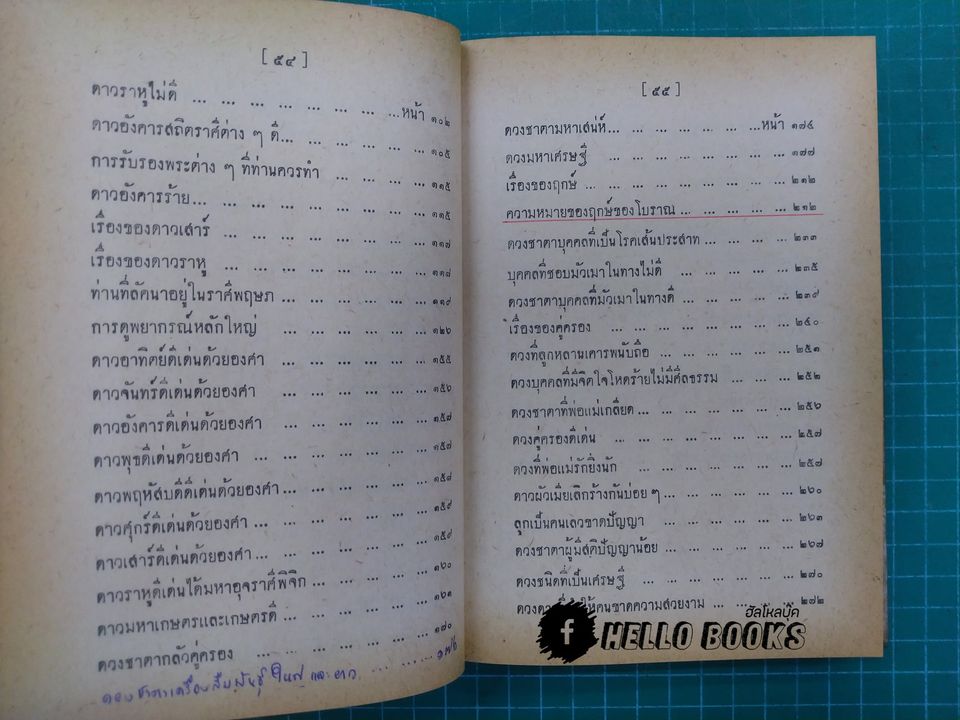 [ ๕๔ ]
ดาวราหูไม่ดี ... ... ... ... ... ... ... ...หน้า ๑๐๒
ดาวอังคารสถิตราศีต่าง ๆ ดี... ... ... ... ... ... ๑๐๕
การรับรองพระต่าง ๆ ที่ท่านควรทำ ... ... ... ... ๑๑๕
ดาวอังคารร้าย... ... ... ... ... ... ... ... ๑๑๕
เรื่องของดาวเสาร์ ... ... ... ... ... ... ... ๑๑๗
เรื่องของดาวราหู ... ... ... ... ... ... ... ๑๑๘
ท่านที่ลัคนาอยู่ในราศีพฤษภ ... ... ... ... ... ๑๑๙
การดูพยากรณ์หลักใหญ่ ... ... ... ... ... ... ๑๒๖
ดาวอาทิตย์ดีเด่นด้วยองศา ... ... ... ... ... ๑๕๕
ดาวจันทร์ดีเด่นด้วยองศา ... ... ... ... ... ... ๑๕๖
ดาวอังคารดีเด่นด้วยองศา ... ... ... ... ... ๑๕๗
ดาวพุธดีเด่นด้วยองศา ... ... ... ... ... ... ๑๕๗
ดาวพฤหัสบดีดีเด่นด้วยองศา ... ... ... ... ... ๑๕๘
ดาวศุกร์ดีเด่นด้วยองศา ... ... ... ... ... ... ๑๕๙
ดาวเสาร์ดีเด่นด้วยองศา ... ... ... ... ... ... ๑๕๙
ดาวราหูดีเด่นได้มหาอุจราศีพิจิก ... ... ... ... ๑๖๐
ดาวมหาเกษตรและเกษตรดี ... ... ... ... ... ๑๖๑
ดวงชาตากลัวคู่ครอง ... ... ... ... ... ... ๑๗๐
[ ๕๕ ]
ดวงชาตามหาเสน่ห์... ... ... ... ... ...หน้า ๑๗๔
ดวงมหาเศรษฐี ... ... ... ... ... ... ... ๑๗๗
เรื่องของฤกษ์ ... ... ... ... ... ... ... ๒๑๒
ความหมายของฤกษ์ของโบราณ ... ... ... ... ... ๒๑๒
ดวงชาตาบุคคลที่เป็นโรคเส้นประสาท ... ... ... ... ๒๓๓
บุคคลที่ชอบมัวเมาในทางไม่ดี ... ... ... ... ... ๒๓๕
ดวงชาตาบุคคลที่มัวเมาในทางดี ... ... ... ... ๒๓๙
เรื่องของคู่ครอง ... ... ... ... ... ... ... ๒๔๐
ดวงที่ลูกหลานเคารพนับถือ ... ... ... ... ... ๒๕๑
ดวงบุคคลที่มีจิตใจโหดร้ายไม่มีศีลธรรม ... ... ... ๒๕๒
ดวงชาตาที่พ่อแม่เกลียด ... ... ... ... ... ... ๒๕๖
ดวงคู่ครองดีเด่น ... ... ... ... ... ... ... ๒๕๗
ดวงที่พ่อแม่รักยิ่งนัก ... ... ... ... ... ... ๒๕๗
ดาวผัวเมียเลิกร้างกันบ่อย ๆ ... ... ... ... ... ๒๖๐
ลูกเป็นคนเลวขาดปัญญา ... ... ... ... ... ๒๖๓
ดวงชาตาผู้มีสติปัญญาน้อย ... ... ... ... ... ๒๖๗
ดวงชนิดที่เป็นเศรษฐี ... ... ... ... ... ... ๒๗๐
ให้คนขาดความสวยงาม ... ... ... ... ๒๗๒
ฮัลโหลบุ๊ค
f HELLO BOOKS